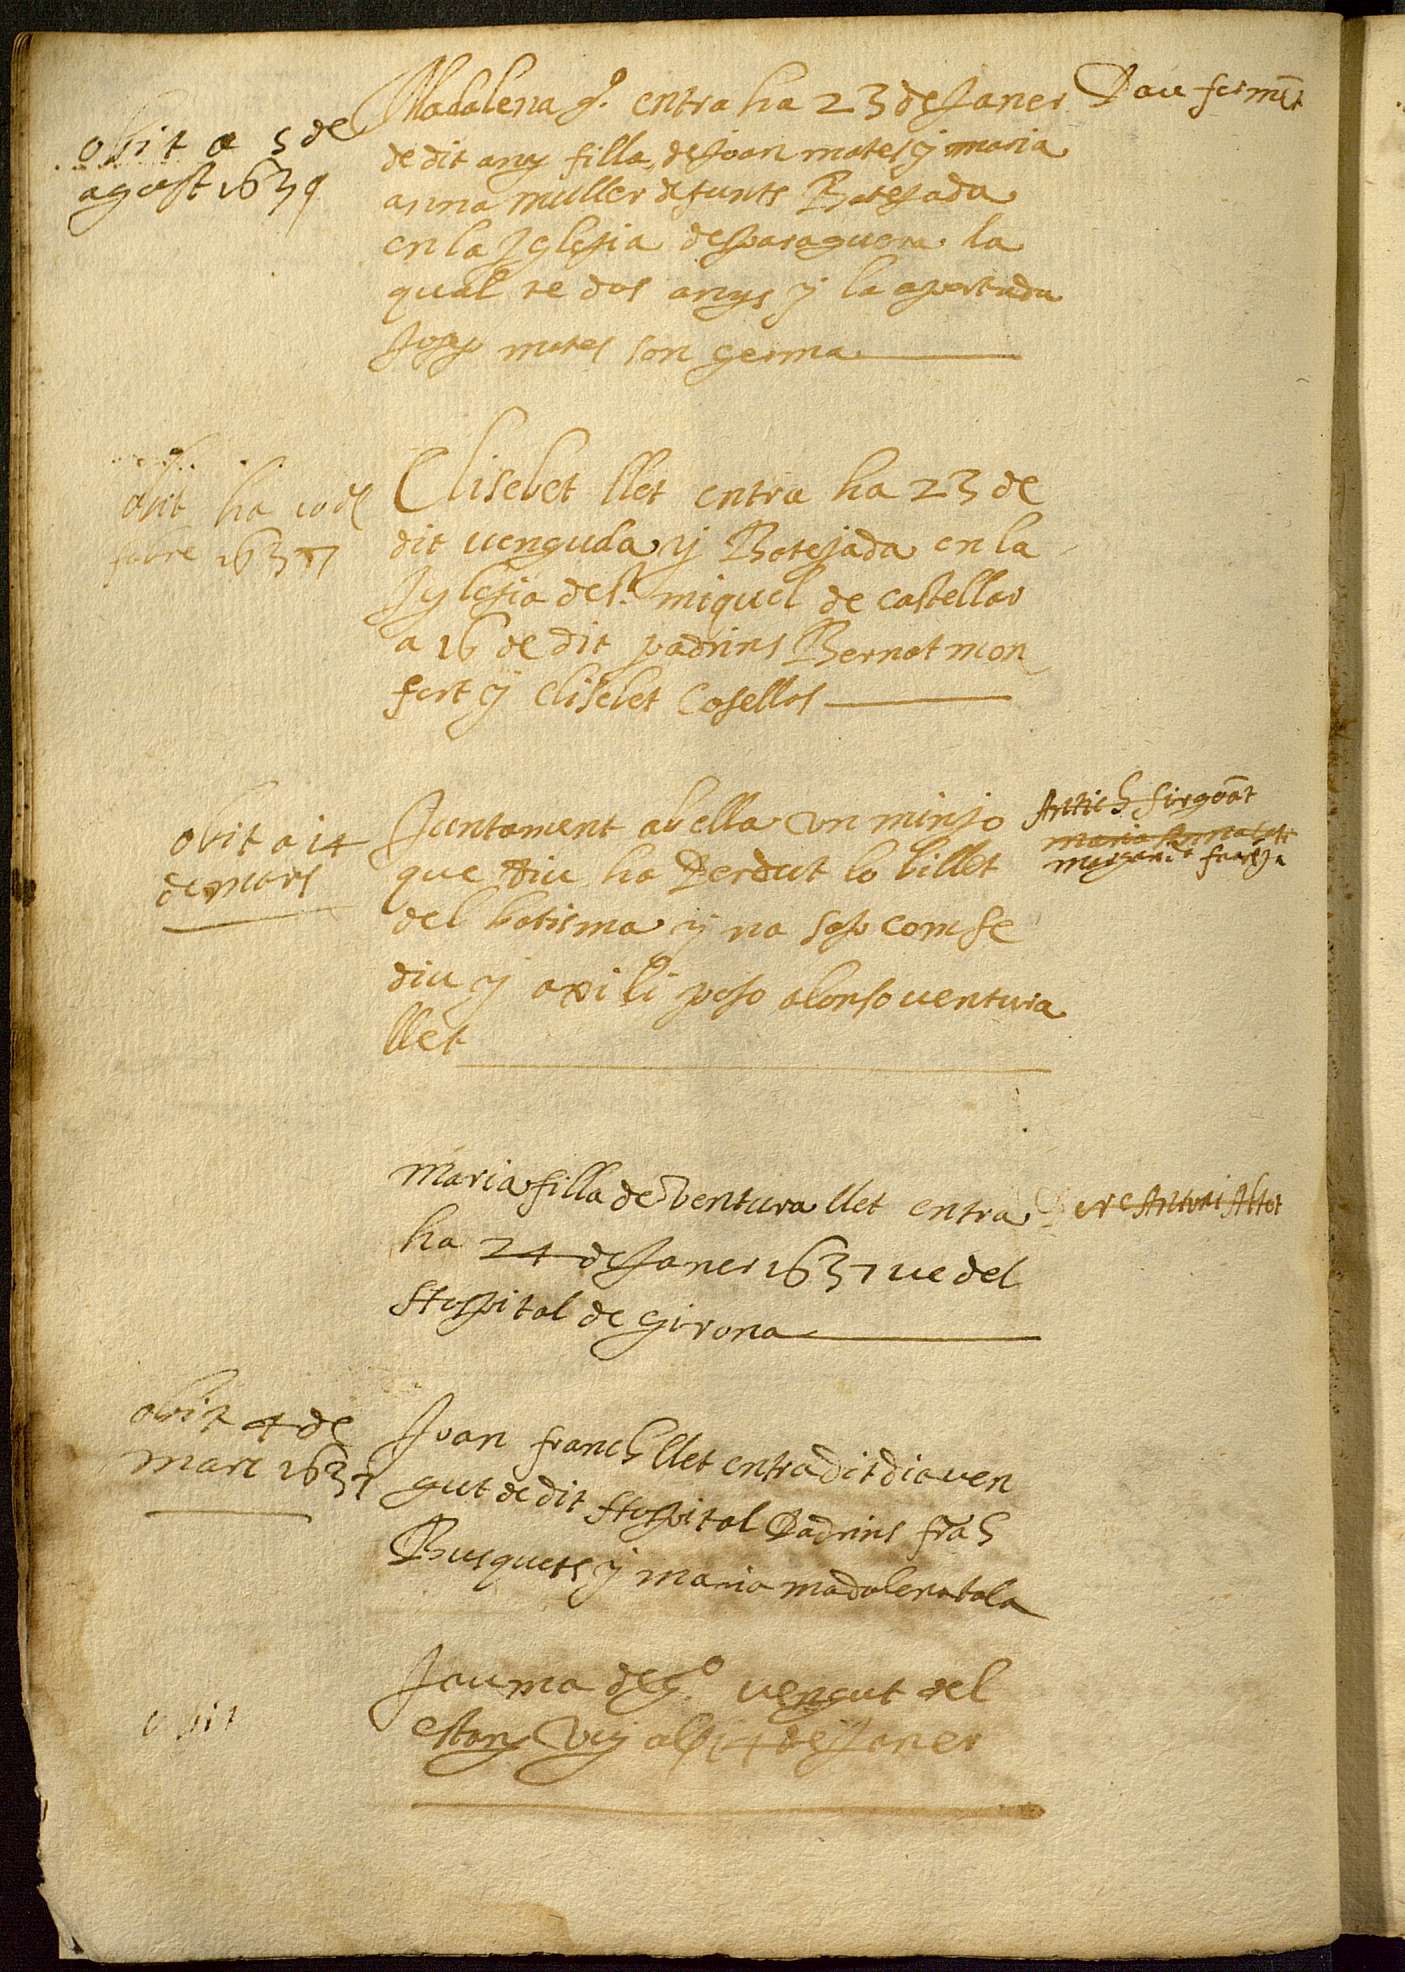 obit a 5 de
agost 1639
Madalena gº. entra ha 23 de Janer
de dit any filla de Joan mates y maria
anna muller defunts Batejada
en la Iglesia desparaguera la
qual te dos anys y la aportada
Joan mates son germa
Pau
obit ha 10 de
1637
Elisebet llet entra ha 23 de
dit venguda y Batejada en la
Iglesia de St. miquel de castellar
a 16 de dit padrins Bernat mon
fort y elisebet Casellas
obit a 14
de mars
Juntament ab ella un minjo
que diu ha Perdut lo billet
del batisma y na sap com se
diu y axi li poso alonso ventura
llet
Antich
maria Anna
margarida
maria filla de Ventura llet entra
ha 24 de Janer 1637 ve del
Hospital de Girona
Antoni
obit 4 de
mars 1637
Joan franch llet entra dit dia ven
gut de dit Hospital Padrins frāch
Busquets y maria madalena tala
obit
Jauma de gº. vengut del
estany vuy als 24 de Janer